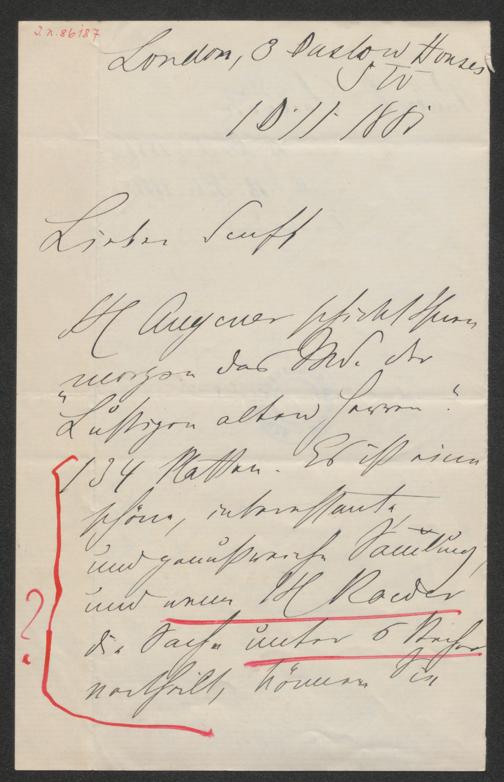 J.N. 86187
London, 3 Onslow Houses
SW
10.11.1881
Lieber Senff
H Augener schickt Ihnen
morgen das Ms. der
"Lustigen alten Herren".
134 Platten. Es ist eine
schöne, interessante,
und genußreiche Samlung,
und wenn H Roeder
die Sache unter 6 Stecher
vertheilt, können Sie
?